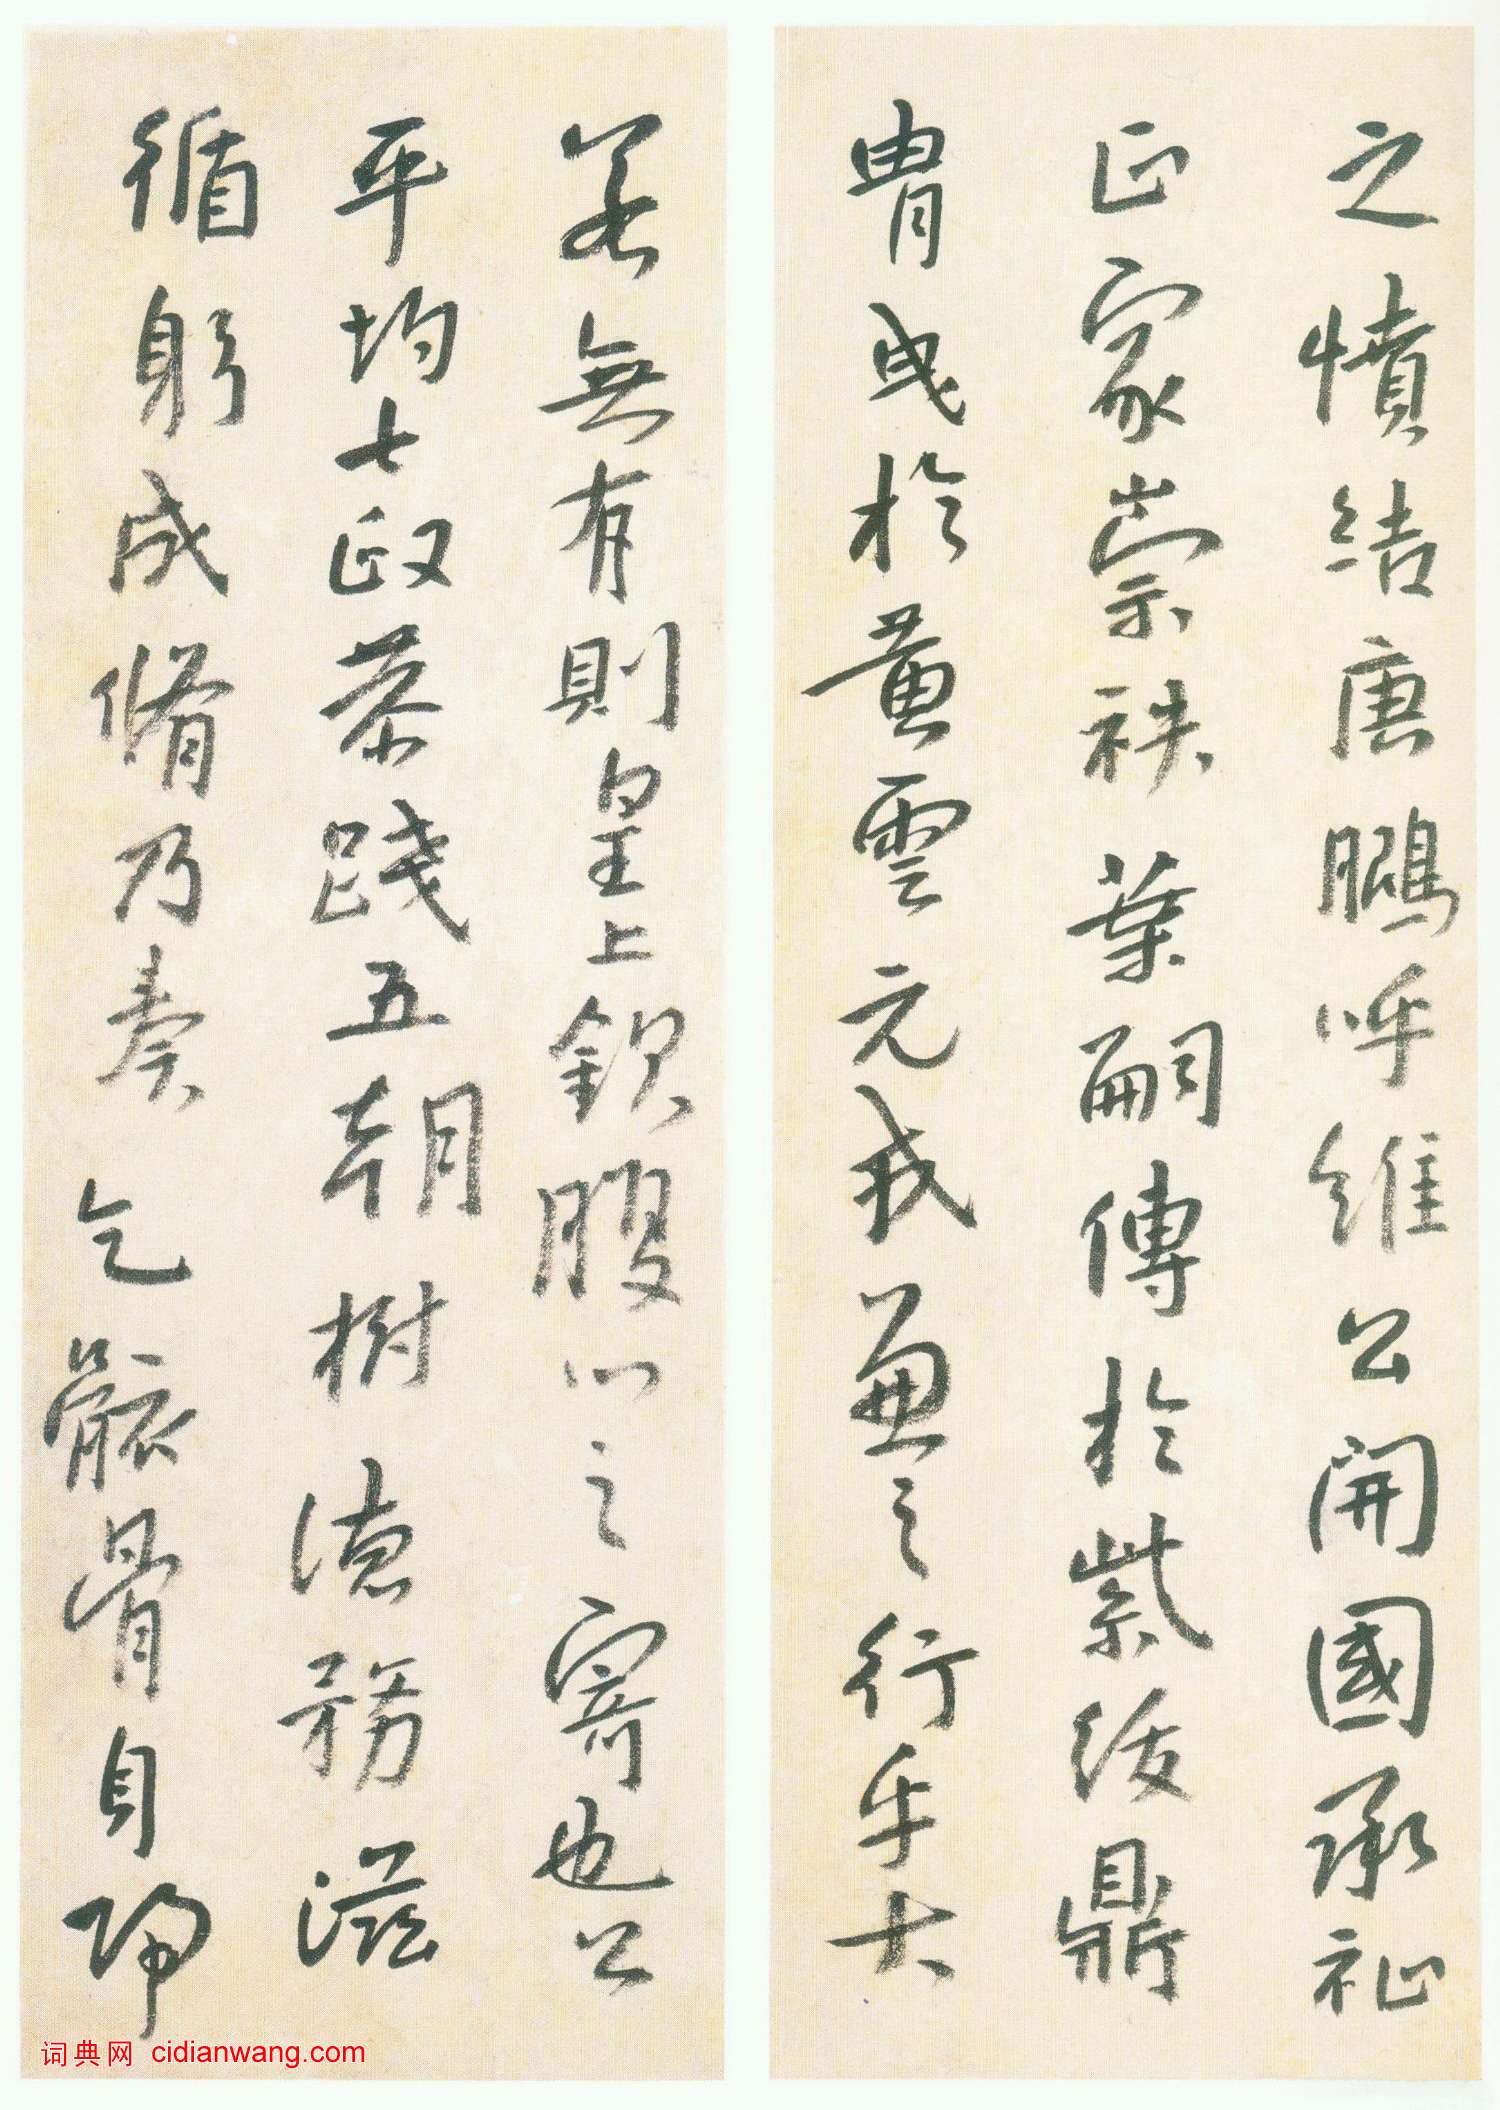 之憤結唐鵬呼維公開國承祉
正家崇祑葉嗣傳於紫綬鼎
胄曳於黃雲元我兼之行乎大
若無有則皇上欽腹心之寄也公
平均七政恭踐五朝樹德務滋
循躬成脩乃奏乞骸骨自歸
词典网 cidianwang.com